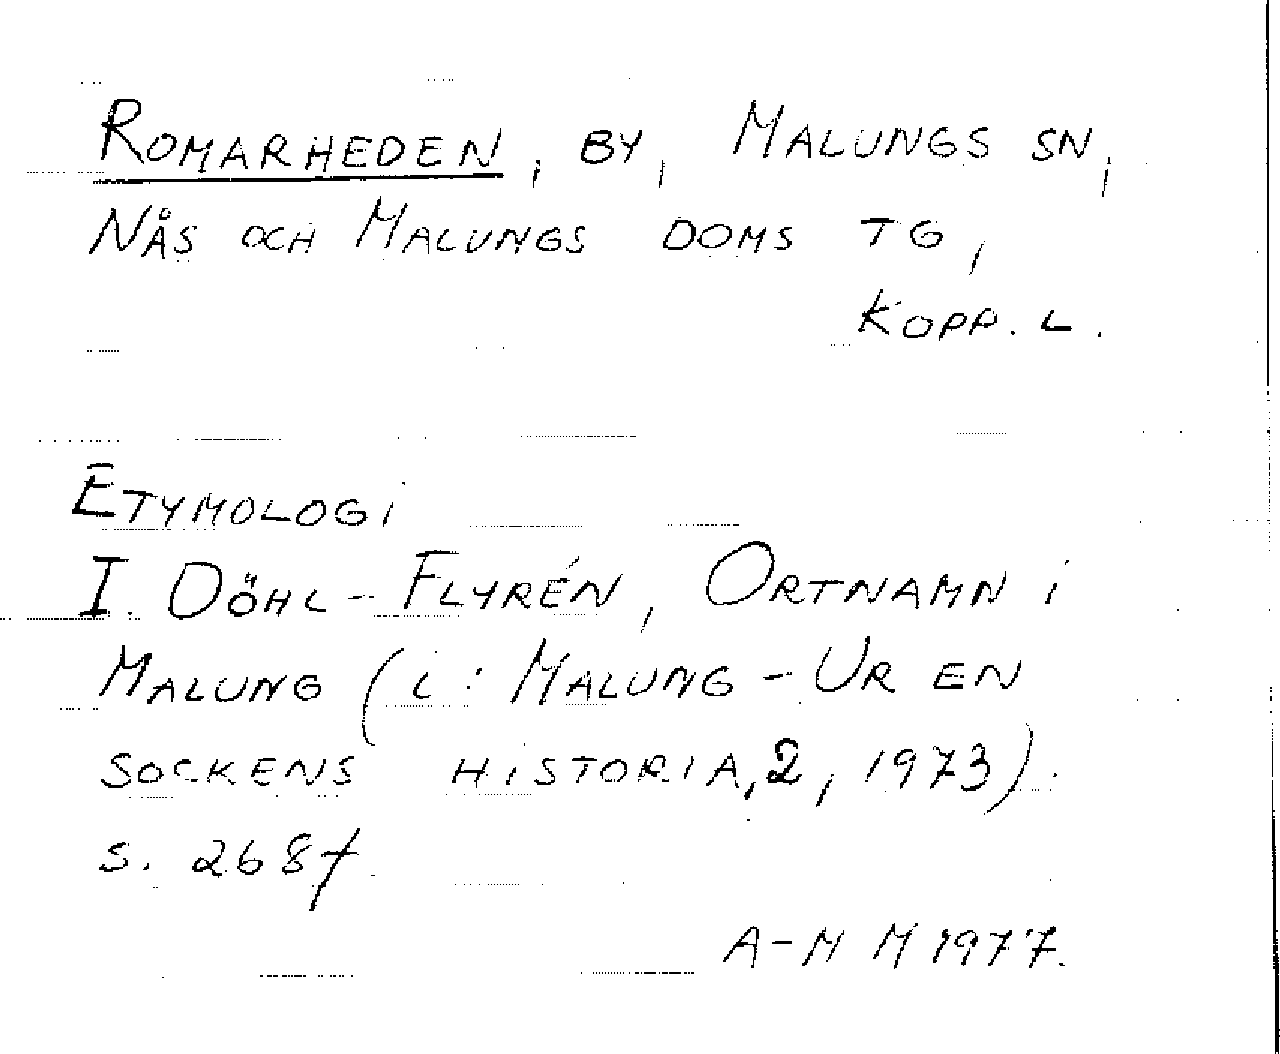 ROMARHEDEN, BY, MALUNGS SN,
NÅS OCH MALUNGS DOMS TG,
KOPP. L.
ETYMOLOGI
I. DÖHL-FLYRÉN, ORTNAMN i
MALUNG (i: MALUNG - UR EN
SOCKENS HISTORIA, 2, 1973).
S. 268f.
A-M M 1977.